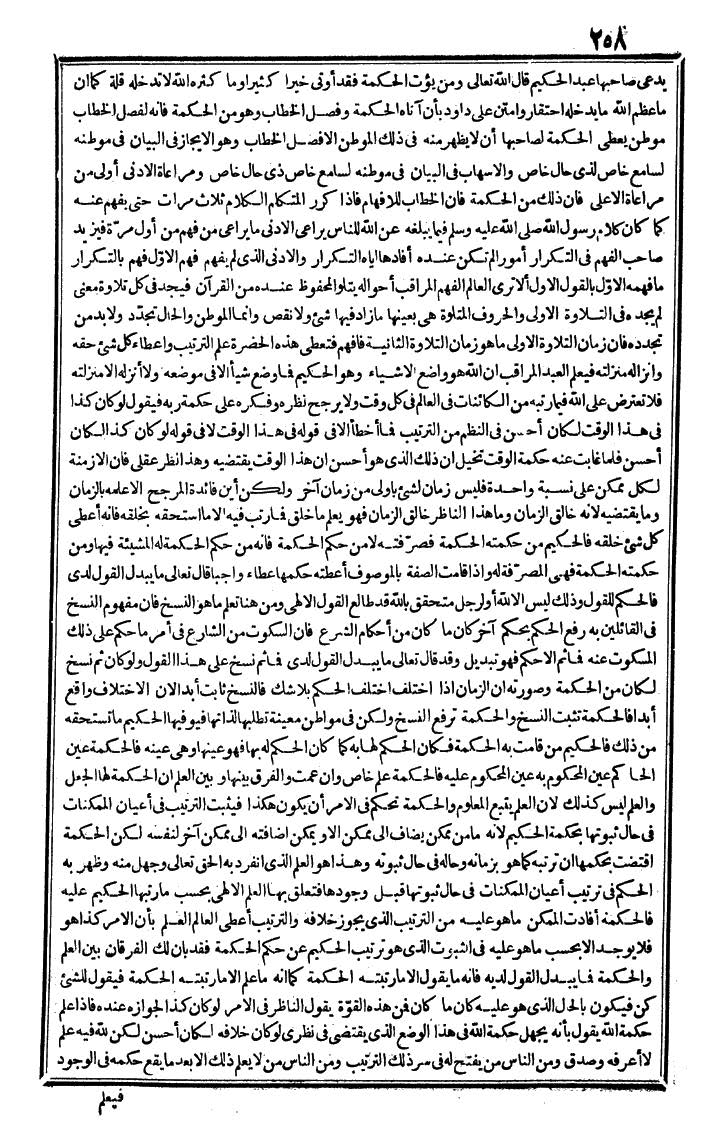 ٢٥٨
يدعى صاحبها عبد الحكيم قال الله تعالى ومن يؤت الحكمة فقد أوتى خيرا كثيرا وما كثره الله لا تدخله قلة كما ان
ما عظم الله ما يدخله احتقار وامتن على داود بأن آتاه الحكمة وفصل الخطاب وهو من الحكمة فانه لفصل الخطاب
موطن يعطى الحكمة لصاحبها أن لا يظهر منه فى ذلك الموطن الا فصل الخطاب وهو الايجاز فى البيان فى موطنه
لسامع خاص لذى حال خاص والاسهاب فى البيان فى موطنه لسامع خاص ذى حال خاص ومراعاة الادنى أولى من
مراعاة الاعلى فان ذلك من الحكمة فان الخطاب للافهام فاذا كرر المتكلم الكلام ثلاث مرات حتى يفهم عنه
كما كان كلام رسول الله صلى الله عليه وسلم فيما يبلغه عن الله للناس يراعى الادنى ما يراعى من فهم من أول مرّة فيزيد
صاحب الفهم فى التكرار أمورا لم تكن عنده أفادها اياه التكرار والادنى الذى لم يفهم فهم الاوّل فهم بالتكرار
ما فهمه الاوّل بالقول الاول ألا ترى العالم الفهم المراقب أحواله يتلو المحفوظ عنده من القرآن فيجد فى كل تلاوة معنى
لم يجده فى التلاوة الاولى والحروف المتلوة هى بعينها ما زاد فيها شئ ولا نقص وانما الموطن والحال تجدّد ولا بد من
تجدده فان زمان التلاوة الاولى ما هو زمان التلاوة الثانية فافهم فتعطى هذه الحضرة علم الترتيب واعطاء كل شئ حقه
وانزاله منزلته فيعلم العبد المراقب ان الله هو واضع الاشياء وهو الحكيم فما وضع شيأ الا فى موضعه ولا أنزله الا منزلته
فلا تعترض على الله فيما رتبه من الكائنات فى العالم فى كل وقت ولا يرجح نظره وفكره على حكمة ربه فيقول لو كان كذا
فى هذا الوقت لكان أحسن فى النظم من الترتيب فما أخطأ الا فى قوله فى هذا الوقت لا فى قوله لو كان كذا لكان
أحسن فلما غابت عنه حكمة الوقت تخيل ان ذلك الذى هو أحسن ان هذا الوقت يقتضيه وهذا نظر عقلى فان الازمنة
لكل ممكن على نسبة واحدة فليس زمان لشئ باولى من زمان آخر ولكن أين فائدة المرجح الا علمه بالزمان
وما يقتضيه لانه خالق الزمان وما هذا الناظر خالق الزمان فهو يعلم ما خلق فما رتب فيه الا ما استحقه بخلقه فانه أعطى
كل شئ خلقه فالحكيم من حكمته الحكمة فصرّفته لا من حكم الحكمة فانه من حكم الحكمة له المشيئة فيها ومن
حكمته الحكمة فهى المصرّفة له واذا قامت الصفة بالموصوف أعطته حكمها عطاء واجبا قال تعالى ما يبدل القول لدى
فالحكم للقول وذلك ليس الا لله أو لرجل متحقق بالله قد طالع القول الالهى ومن هنا تعلم ما هو النسخ فان مفهوم النسخ
فى القائلين به رفع الحكم بحكم آخر كان ما كان من أحكام الشرع فان السكوت من الشارع فى أمر ما حكم على ذلك
المسكوت عنه فما ثم الا حكم فهو تبديل وقد قال تعالى ما يبدل القول لدى فما ثم نسخ على هذا القول ولو كان ثم نسخ
لكان من الحكمة وصورته ان الزمان اذا اختلف اختلف الحكم بلا شك فالنسخ ثابت أبدا لان الاختلاف واقع
أبدا فالحكمة تثبت النسخ والحكمة ترفع النسخ ولكن فى مواطن معينة تطلبها لذاتها فيوفيها الحكيم ما تستحقه
من ذلك فالحكيم من قامت به الحكمة فكان الحكم لها به كما كان الحكم له بها فهو عينها وهى عينه فالحكمة عين
الحاكم عين المحكوم به عين المحكوم عليه فالحكمة علم خاص وان عمت والفرق بينها وبين العلم ان الحكمة لها الجعل
والعلم ليس كذلك لان العلم يتبع المعلوم والحكمة تحكم فى الامر أن يكون هكذا فيثبت الترتيب فى أعيان الممكنات
فى حال ثبوتها بحكمة الحكيم لانه ما من ممكن يضاف الى ممكن الا ويمكن اضافته الى ممكن آخر لنفسه لكن الحكمة
اقتضت بحكمها ان ترتبه كما هو بزمانه وحاله فى حال ثبوته وهذا هو العلم الذى انفرد به الحق تعالى وجهل منه وظهر به
الحكم فى ترتيب أعيان الممكنات فى حال ثبوتها قبل وجودها فتعلق بها العلم الالهى بحسب ما رتبها الحكيم عليه
فالحكمة أفادت الممكن ما هو عليه من الترتيب الذى يجوز خلافه والترتيب أعطى العالم العلم بأن الامر كذا هو
فلا يوجد الا بحسب ما هو عليه فى الثبوت الذى هو ترتيب الحكيم عن حكم الحكمة فقد بان لك الفرقان بين العلم
والحكمة فما يبدل القول لديه فانه ما يقول الا ما رتبته الحكمة كما انه ما علم الا ما رتبته الحكمة فيقول للشئ
كن فيكون بالحال الذى هو عليه كان ما كان فمن هذه القوّة يقول الناظر فى الامر لو كان كذا لجوازه عنده فاذا علم
حكمة الله يقول بأنه يجهل حكمة الله فى هذا الوضع الذى يقتضى فى نظرى لو كان خلافه لكان أحسن لكن لله فيه علم
لا أعرفه وصدق ومن الناس من يفتح له فى سر ذلك الترتيب ومن الناس من لا يعلم ذلك الا بعد ما يقع حكمه فى الوجود
فيعلم